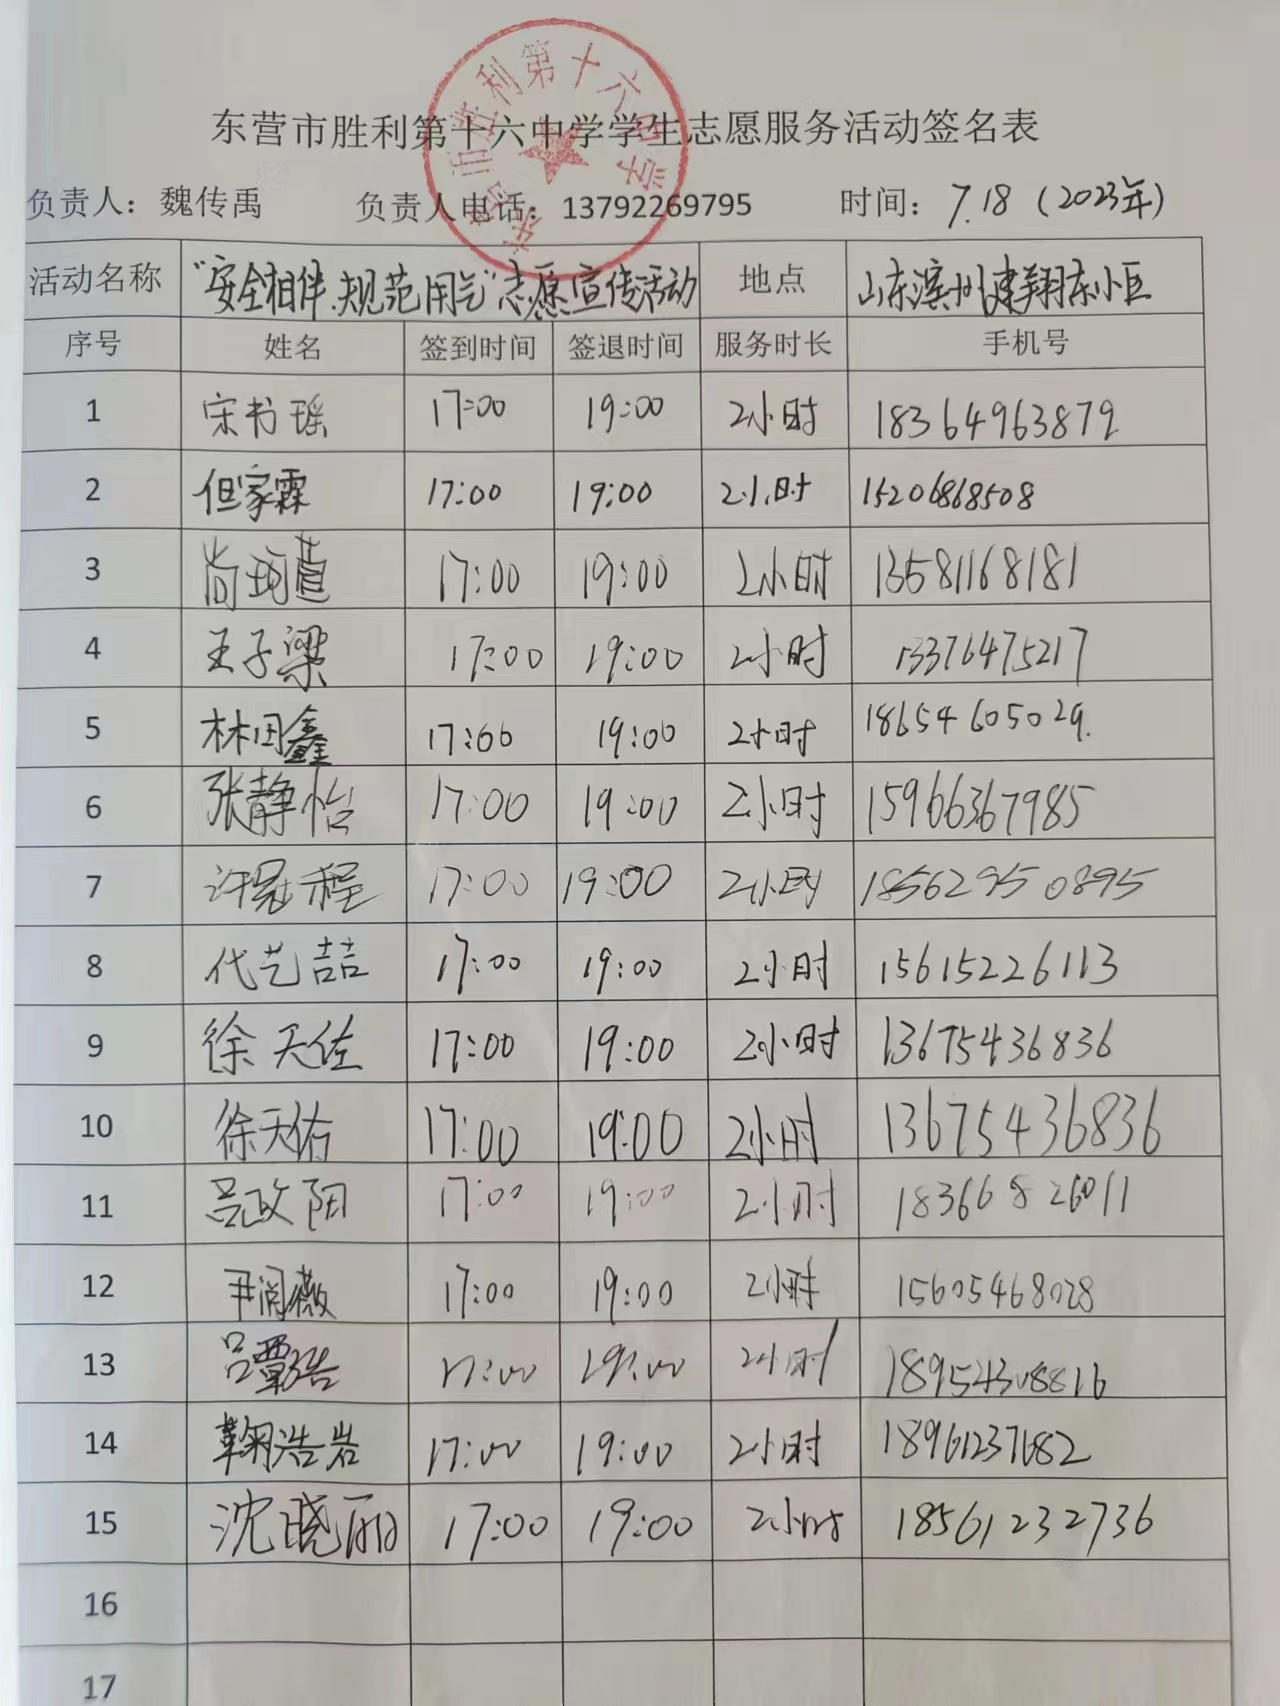 东营市胜利第十六中学学生志愿服务活动签名表
东营市胜利第十六中学
负责人：魏传禹 负责人电话：13792269795 时间：7.18（2023年）
活动名称 "安全相伴.规范用气"志愿宣传活动 地点 山东滨州建翔东小区
序号 姓名 签到时间 签退时间 服务时长 手机号
1 宋书瑶 17:00 19:00 2小时 18364963879
2 但家霖 17:00 19:00 2小时 15206868508
3 尚 17:00 19:00 2小时 13581168181
4 王子梁 17:00 19:00 2小时 13376475217
5 林田鑫 17:00 19:00 2小时 18654605029.
6 张静怡 17:00 19:00 2小时 15966367985
7 许冕程 17:00 19:00 2小时 18562950895
8 代艺喆 17:00 19:00 2小时 15615226113
9 徐天佐 17:00 19:00 2小时 13675436836
10 徐天佑 17:00 19:00 2小时 13675436836
11 吕政阳 17:00 19:00 2小时 18366826011
12 尹润薇 17:00 19:00 2小时 15605468028
13 吕覃浩 17:00 19:00 2小时 18954308816
14 鞠浩岩 17:00 19:00 2小时 18961237682
15 沈晓丽 17:00 19:00 2小时 18561232736
16
17